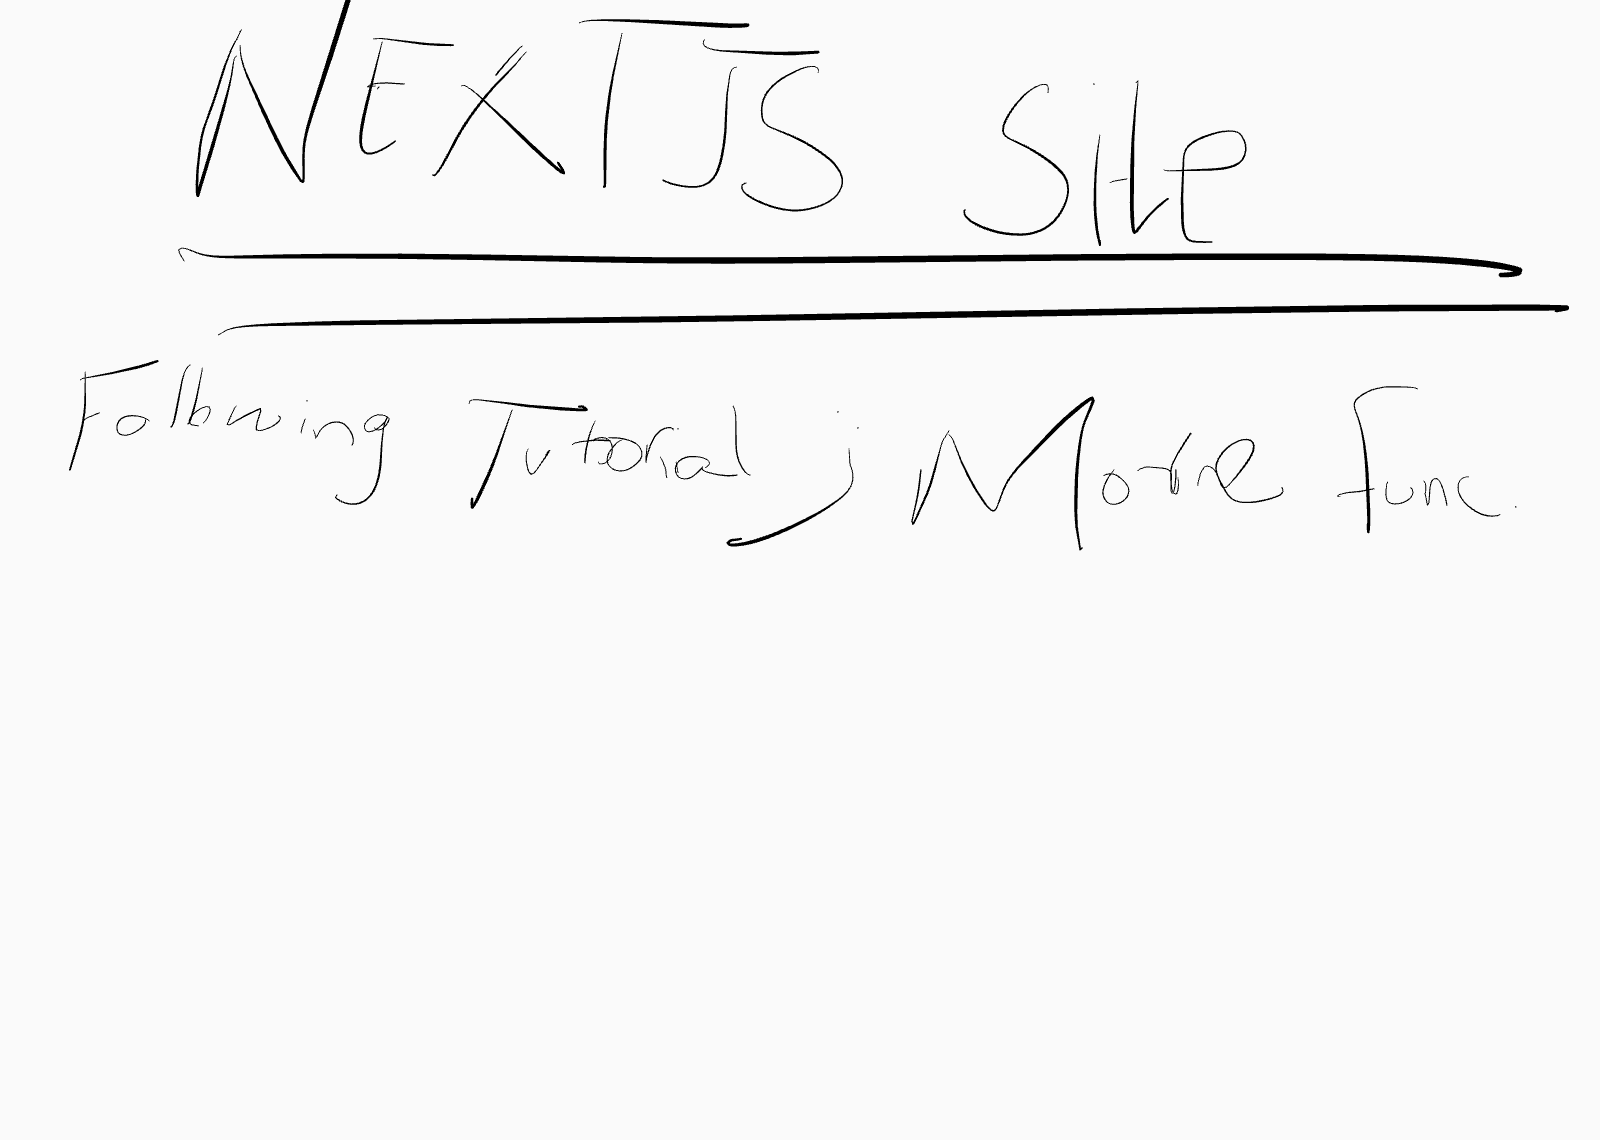 NEXTJS Site
Following Tutorial ; More func.